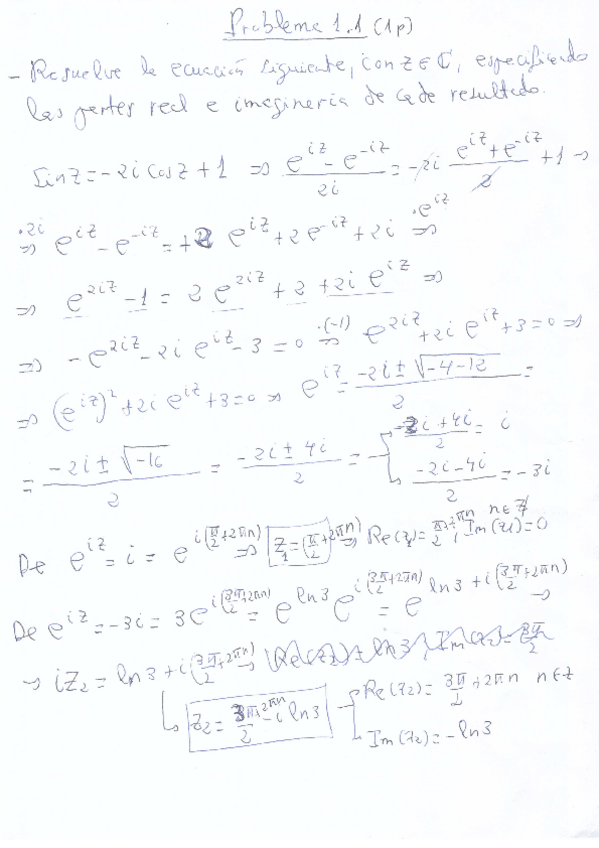 Problema 1.1 (1p)
- Resuelve la ecuación siguiente, con z ∈ ℂ, especificando
las partes real e imaginaria de cada resultado.
sin z = -2i cos z + 1 ⇒ (e^{iz} - e^{-iz})/2i = -2i (e^{iz} + e^{-iz})/2 + 1 ⇒
·2i ⇒ e^{iz} - e^{-iz} = +2 e^{iz} + 2e^{-iz} + 2i ·e^{iz} ⇒
⇒ e^{2iz} - 1 = 2 e^{2iz} + 2 + 2i e^{iz} ⇒
⇒ -e^{2iz} - 2i e^{iz} - 3 = 0 ·(-1) ⇒ e^{2iz} + 2i e^{iz} + 3 = 0 ⇒
⇒ (e^{iz})² + 2i e^{iz} + 3 = 0 ⇒ e^{iz} = (-2i ± √(-4-12))/2 =
= (-2i ± √-16)/2 = (-2i ± 4i)/2 = (-2i + 4i)/2 = i
(-2i - 4i)/2 = -3i
De e^{iz} = i = e^{i(π/2 + 2πn)} ⇒ z₁ = (π/2 + 2πn) ⇒ Re(z₁) = π/2 + 2πn, Im(z₁) = 0 n ∈ ℤ
De e^{iz} = -3i = 3e^{i(3π/2 + 2πn)} = e^{ln3} e^{i(3π/2 + 2πn)} = e^{ln3 + i(3π/2 + 2πn)} ⇒
⇒ iz₂ = ln3 + i(3π/2 + 2πn) ⇒ Re(z₂) = ln3, Im(z₂) = 3π/2
z₂ = 3π/2 + 2πn - i ln3
Re(z₂) = 3π/2 + 2πn n ∈ ℤ
Im(z₂) = -ln3